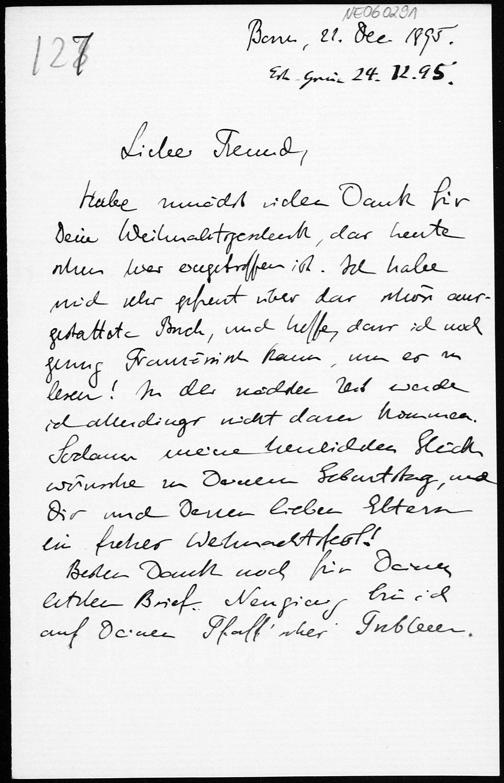 NE060291
127
Bonn, 21. Dec 1895.
24.12.95.
Lieber Freund,
Habe zunächst vielen Dank für
Dein Weihnachtsgeschenk, das heute
schon hier eingetroffen ist. Ich habe
mich sehr gefreut über das schön aus-
gestattete Buch, und hoffe, dass ich noch
genug Französisch kann, um es zu
lesen! In der nächsten Zeit werde
ich allerdings nicht dazu kommen.
Sodann meine herzlichsten Glück
wünsche zu Deinem Geburtstag, und
Dir und Deinen lieben Eltern
ein frohes Weihnachtsfest!
Besten Dank noch für Deinen
letzten Brief. Neugierig bin ich
auf Deinen Pfaff'schen Problem.